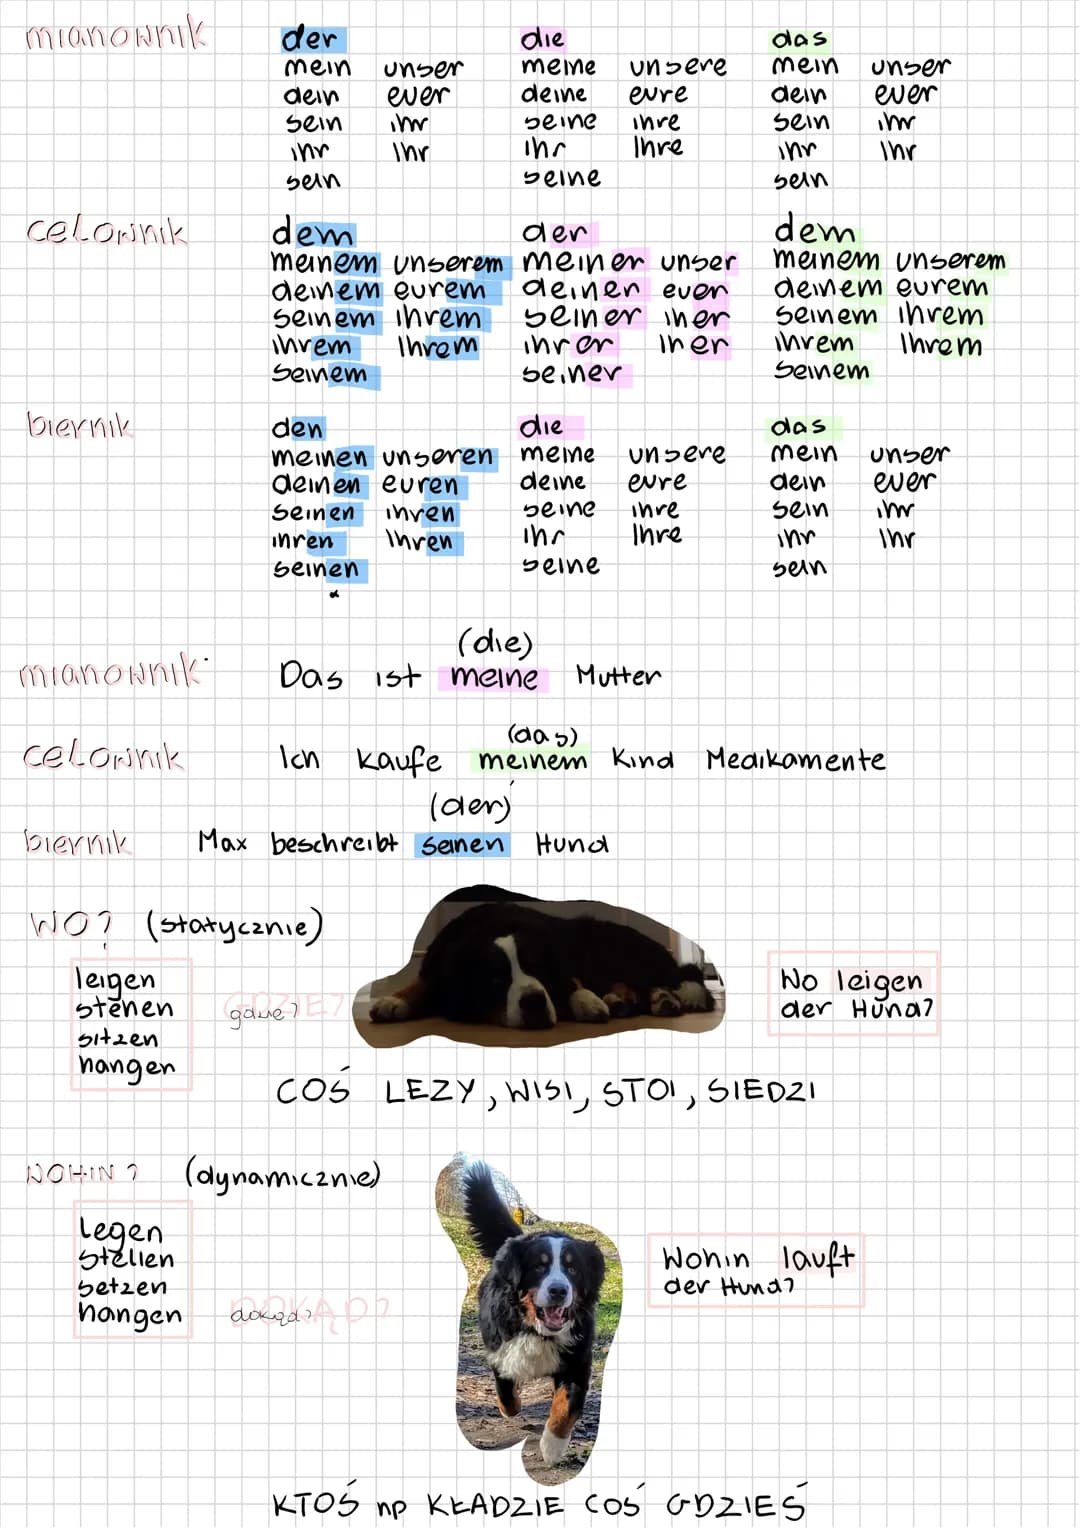 mianownik der die das
mein unser meine unsere mein unser
dein euer deine eure dein euer
sein ihr seine ihre sein ihr
ihr Ihr ihr Ihre ihr Ihr
sein seine sein
celownik dem der dem
meinem unserem meiner unser meinem unserem
deinem eurem deiner euer deinem eurem
seinem ihrem seiner iher seinem ihrem
ihrem Ihrem ihrer Iher ihrem Ihrem
seinem seiner seinem
biernik den die das
meinen unseren meine unsere mein unser
deinen euren deine eure dein euer
seinen ihren seine ihre sein ihr
ihren Ihren ihr Ihre ihr Ihr
seinen seine sein
(die)
mianownik Das ist meine Mutter
(das)
celownik Ich kaufe meinem Kind Medikamente
(der)
biernik Max beschreibt seinen Hund
WO? (statycznie)
leigen
stehen
sitzen
hangen
GDZIE?
gdzie?
Wo leigen
der Hund?
COŚ LEZY, WISI, STOI, SIEDZI
WOHIN? (dynamicznie)
legen
stellen
setzen
hangen
DOKĄD?
dokąd?
Wohin lauft
der Hund?
KTOŚ np KŁADZIE COŚ GDZIEŚ